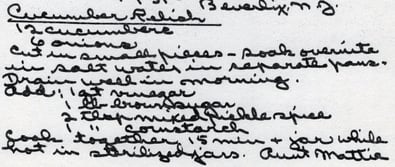 Beverly, N.J.
Cucumber Relish
12 cucumbers
6 onions
Cut in small pieces - soak overnite
in salt water in separate pans.
Drain well in morning.
Add: 1 qt vinegar
1 lb brown sugar
2 tbsp mixed pickle spice
1 " cornstarch
Cook together 15 min + jar while
hot in sterilized jars. Aunt Mattie